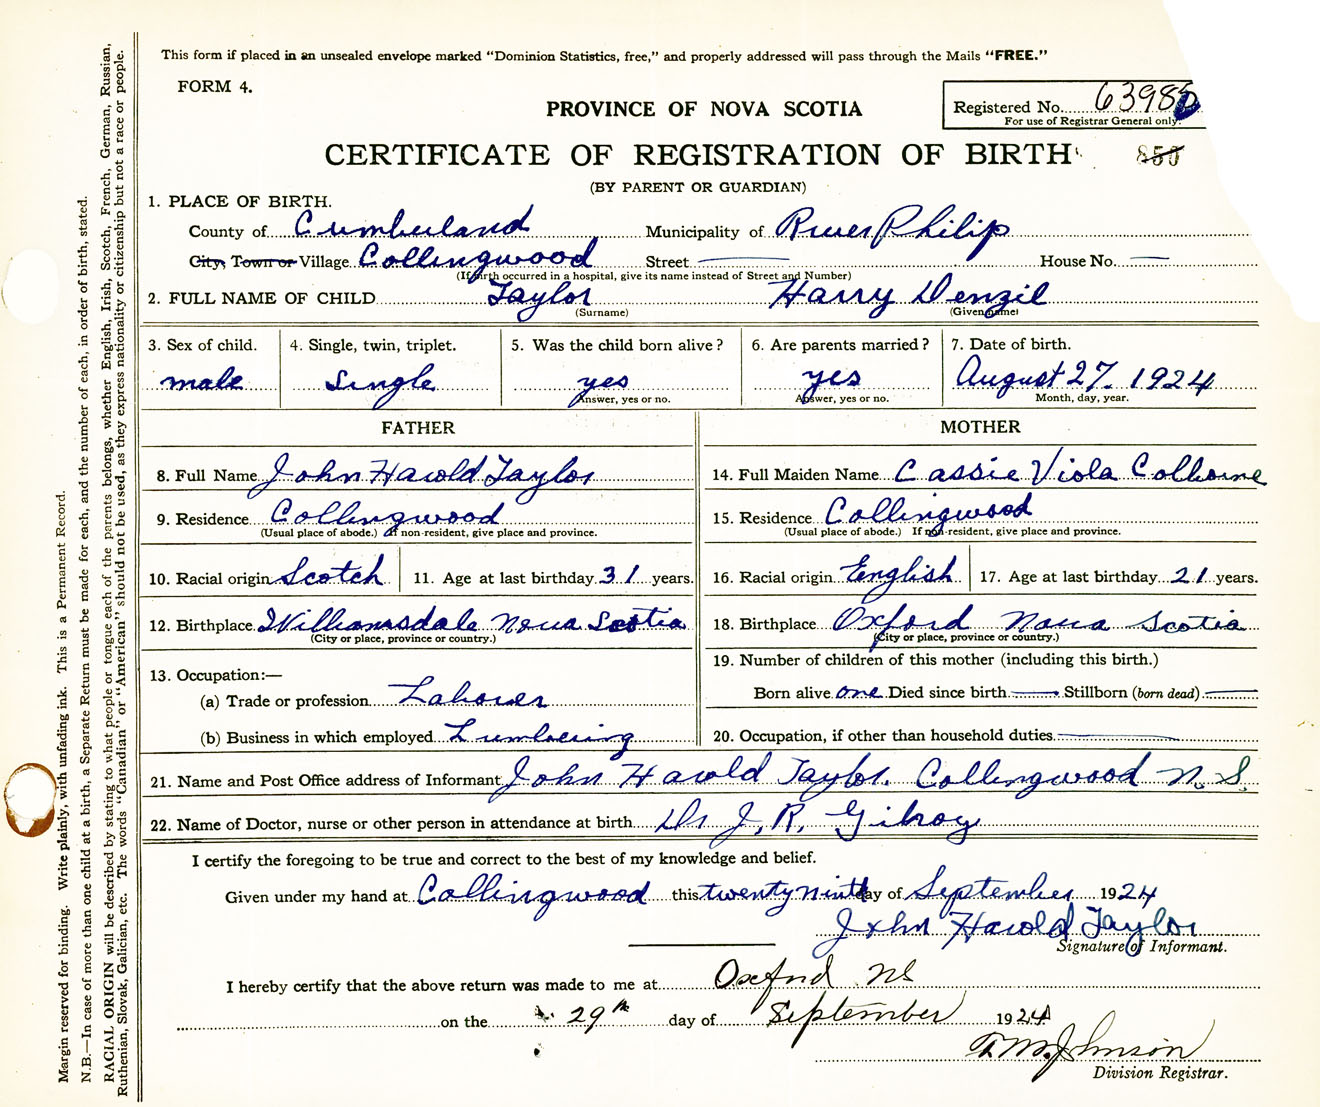 This form if placed in an unsealed envelope marked "Dominion Statistics, free," and properly addressed will pass through the Mails "FREE."
FORM 4.
Registered No. 63985
For use of Registrar General only.
PROVINCE OF NOVA SCOTIA
CERTIFICATE OF REGISTRATION OF BIRTH
850
(BY PARENT OR GUARDIAN)
1. PLACE OF BIRTH.
County of Cumberland Municipality of River Philip
City, Town or Village Collingwood Street — House No. —
(If birth occurred in a hospital, give its name instead of Street and Number)
2. FULL NAME OF CHILD Taylor Harry Denzil
(Surname) (Given name)
3. Sex of child. 4. Single, twin, triplet. 5. Was the child born alive? 6. Are parents married? 7. Date of birth.
male Single yes yes August 27. 1924
Answer, yes or no. Answer, yes or no. Month, day, year.
FATHER MOTHER
8. Full Name John Harold Taylor 14. Full Maiden Name Cassie Viola Colborne
9. Residence Collingwood 15. Residence Collingwood
(Usual place of abode.) If non-resident, give place and province. (Usual place of abode.) If non-resident, give place and province.
10. Racial origin Scotch 11. Age at last birthday 31 years. 16. Racial origin English 17. Age at last birthday 21 years.
12. Birthplace Williamsdale Nova Scotia 18. Birthplace Oxford Nova Scotia
(City or place, province or country.) (City or place, province or country.)
13. Occupation:— 19. Number of children of this mother (including this birth.)
(a) Trade or profession Laborer Born alive one Died since birth — Stillborn (born dead) —
(b) Business in which employed Lumbering 20. Occupation, if other than household duties. —
21. Name and Post Office address of Informant John Harold Taylor. Collingwood N.S.
22. Name of Doctor, nurse or other person in attendance at birth Dr J. R. Gilroy
I certify the foregoing to be true and correct to the best of my knowledge and belief.
Given under my hand at Collingwood this twenty ninth day of September 1924
John Harold Taylor
Signature of Informant.
I hereby certify that the above return was made to me at Oxford NS
on the 29th day of September 1924
Johnson
Division Registrar.
Margin reserved for binding. Write plainly, with unfading ink. This is a Permanent Record.
N.B.—In case of more than one child at a birth, a Separate Return must be made for each, and the number of each, in order of birth, stated.
RACIAL ORIGIN will be described by stating to what people or tongue each of the parents belongs, whether English, Irish, Scotch, French, German, Russian,
Ruthenian, Slovak, Galician, etc. The words "Canadian" or "American" should not be used, as they express nationality or citizenship but not a race or people.